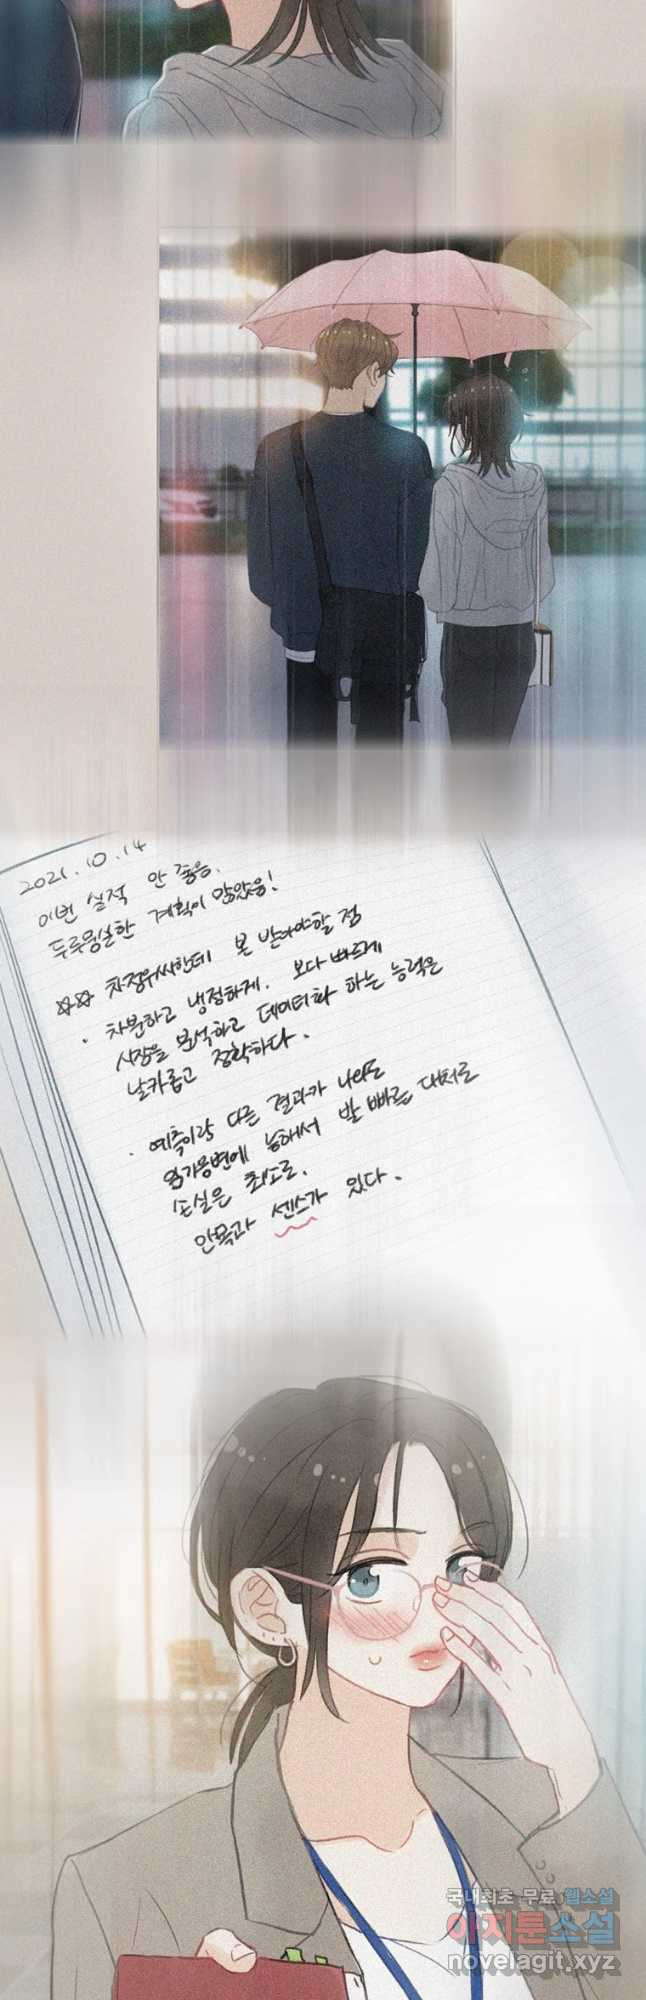 2021.10.14
이번 실적 안 좋음.
두루뭉실한 계획이 많았음!
☆☆ 차정위씨한테 본 받아야할 점
· 차분하고 냉정하게. 보다 빠르게
시장을 분석하고 데이터화 하는 능력은
날카롭고 정확하다.
· 예측이랑 다른 결과가 나와도
임기응변에 능해서 발 빠른 대처로
손실은 최소로.
안목과 센스가 있다.
국내최초 무료 웹소설
아지툰소설
novelagit.xyz